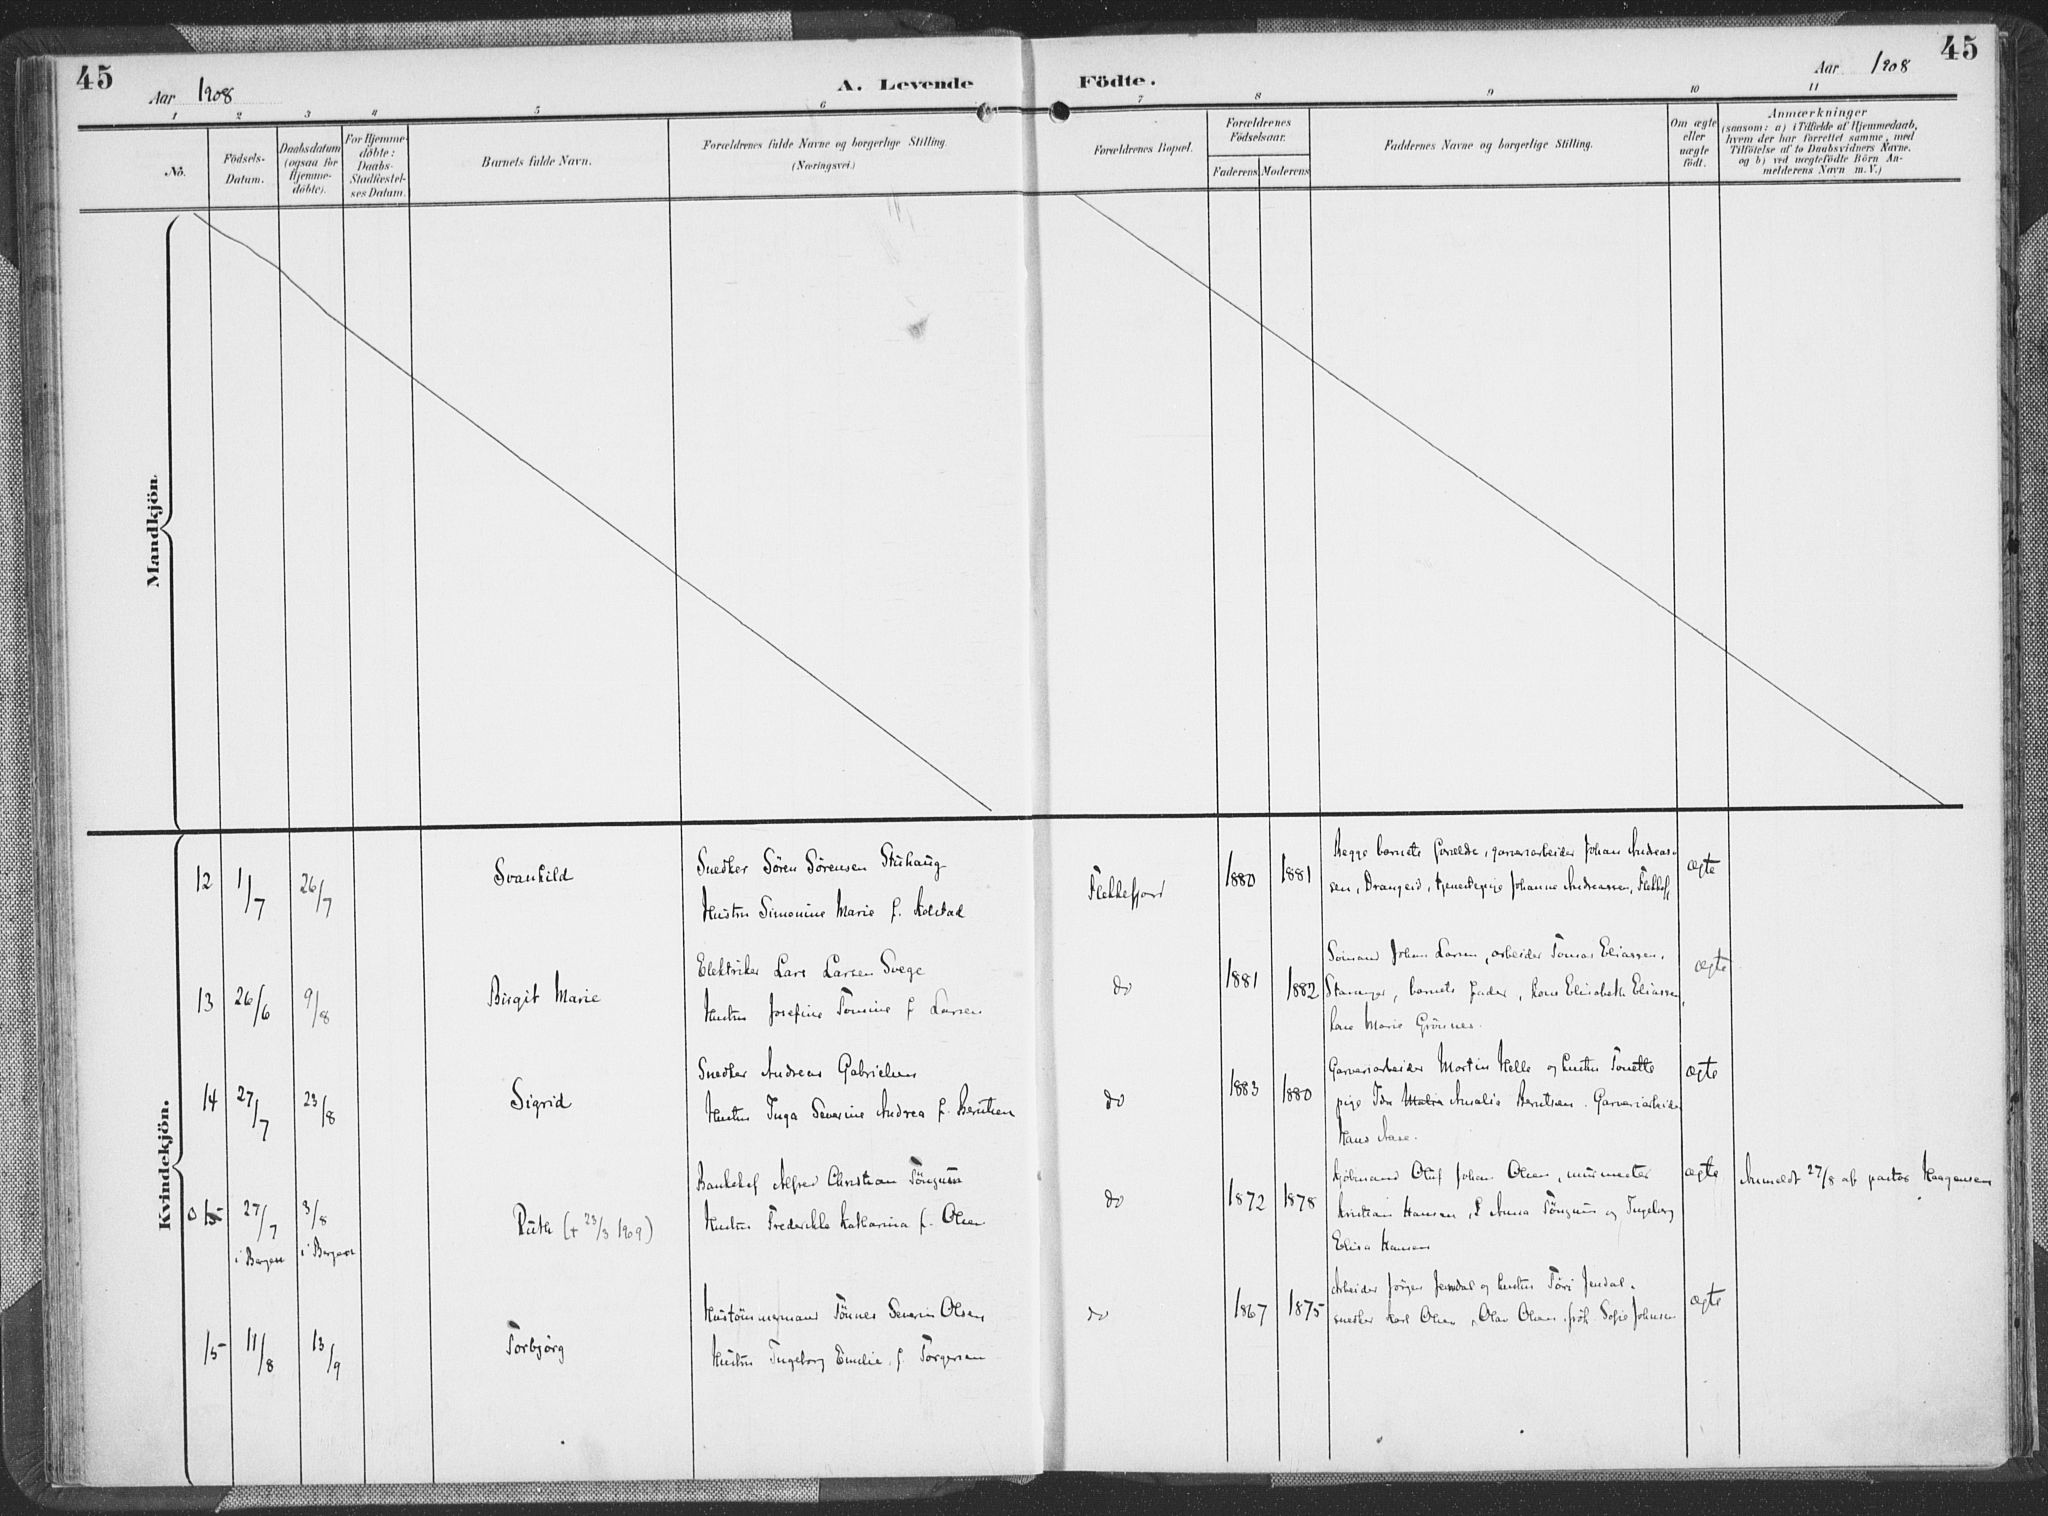 45
45
Aar 1908
A. Levende Födte.
Aar 1908
1 2 3 4 5 6 7 8 9 10 11
No.
Födsels-
Datum.
Daabsdatum
(ogsaa for
Hjemme-
döbte).
For Hjemme-
döbte:
Daabs-
Stadfæstel-
ses Datum.
Barnets fulde Navn.
Forældrenes fulde Navne og borgerlige Stilling.
(Næringsvei.)
Forældrenes Bopæl.
Forældrenes
Födselsaar.
Faderens Moderens
Faddernes Navne og borgerlige Stilling.
Om ægte
eller
uægte
født.
Anmærkninger
(saasom: a) i Tilfælde af Hjemmedaab,
hvem der har forrettet samme, med
Tilföielse af to Daabsvidners Navne.
og b) ved uægtefödte Börn An-
melderens Navn m.V.)
Mandkjön
Kvindekjön.
12 1/7 26/7 Svanhild
Snedker Sören Sörensen Stuhaug
Hustru Simonine Marie f. Kolstad
Flekkefjord 1880 1881
Begge barnets forældre, garveriarbeider Johan Andreas-
sen, Drangeid, tjenestepige Johanne Andreassen, Flekkefj
ægte
13 26/6 9/8 Birgit Marie
Elektriker Lars Larsen Svege
Hustru Josefine Tomine f. Larsen
do 1881 1882
Sömand Johan Larsen, arbeider Tomas Eliassen,
Stavanger, barnets fader, kone Elisabeth Eliassen,
kone Marie Grönnes.
ægte
14 27/7 23/8 Sigrid
Snedker Andreas Gabrielsen
Hustru Inga Severine Andrea f. Berntsen
do 1883 1880
Garveriarbeider Martin Helle og hustru Tonette
pige Ida Maria Amalie Berntsen. Garveriarbeider
Hans Aase.
ægte
0 15 27/7 i Bergen 3/8 i Bergen Ruth (+ 23/3 1909)
Bankchef Alfred Christian Tönnessen
Hustru Frederikke Katharina f. Olsen
do 1872 1878
Kjöbmand Oluf Johan Olsen, murmester
Kristian Hansen, Anna og Ingeborg
Elisa Hansen
ægte
Anmeldt 27/8 af pastor Haagensen
15 11/8 13/9 Torbjörg
Hustömmermand Tönnes Severin Olsen
Hustru Ingeborg Emelie f. Torgersen
do 1867 1875
Arbeider Jörgen Jendal og hustru Tori Jendal.
snedker Karl Olsen, Olav Olsen, frök. Sofie Johnsen
ægte